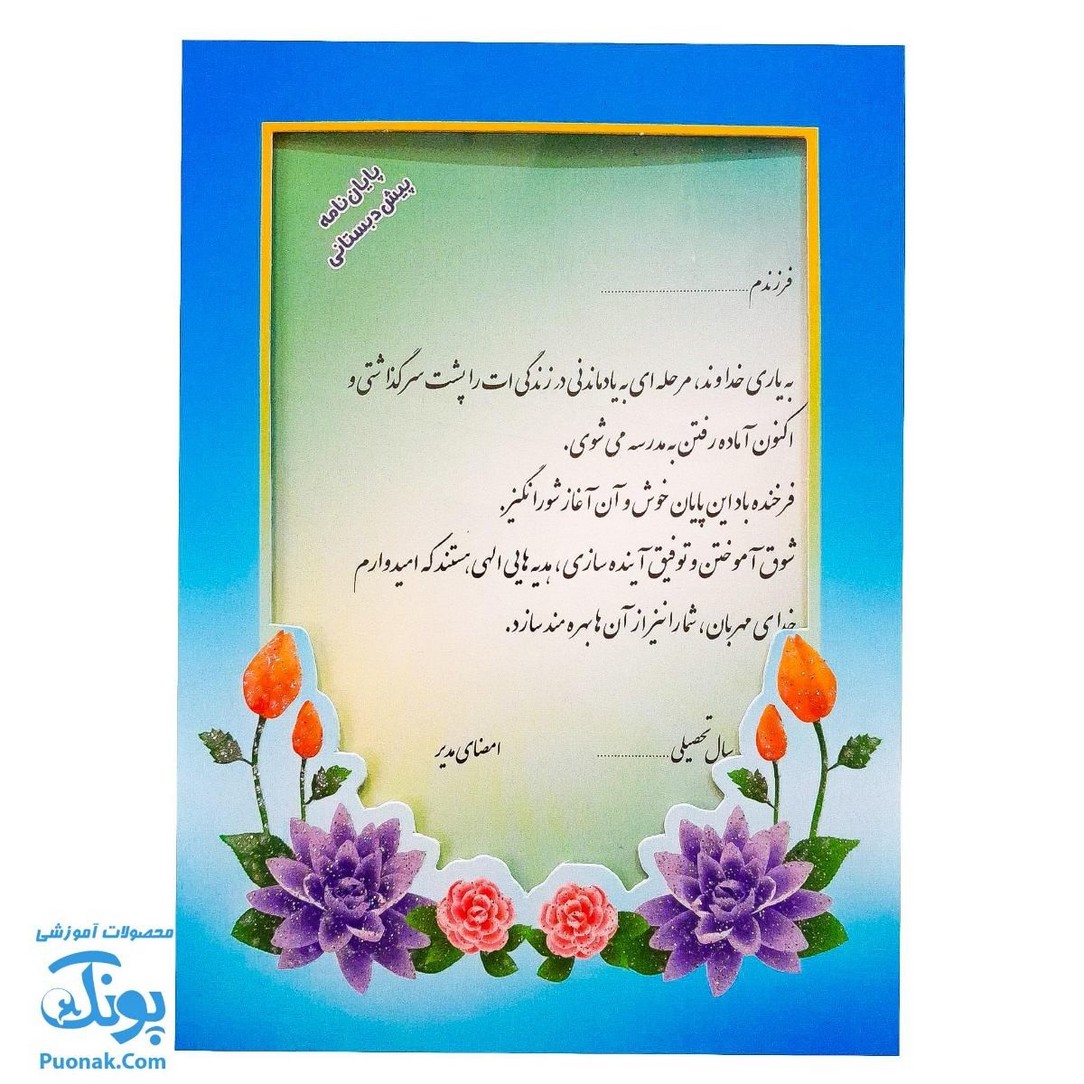 پایان نامه
پیش دبستانی
فرزندم........................................
به یاری خداوند، مرحله ای به یادماندنی در زندگی ات را پشت سر گذاشتی و
اکنون آماده رفتن به مدرسه می شوی.
فرخنده باد این پایان خوش و آن آغاز شورانگیز.
شوق آموختن و توفیق آینده سازی، هدیه هایی الهی هستند که امیدوارم
خدای مهربان، شما را نیز از آن ها بهره مند سازد.
سال تحصیلی.................... امضای مدیر
محصولات آموزشی
پونک
Puonak.Com